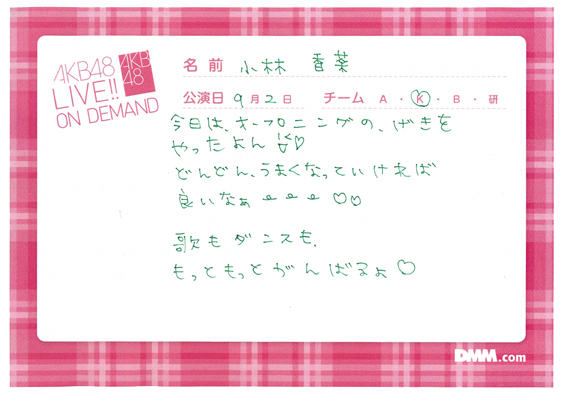 AKB48
LIVE!!
ON DEMAND
AKB
48
名前 小林 香菜
公演日 9月2日 チーム A・K・B・研
今日は、オープニングの、げきを
やったよん♡
どんどん、うまくなっていければ
良いなぁーーー♡♡
歌もダンスも、
もっともっとがんばるよ♡
DMM.com